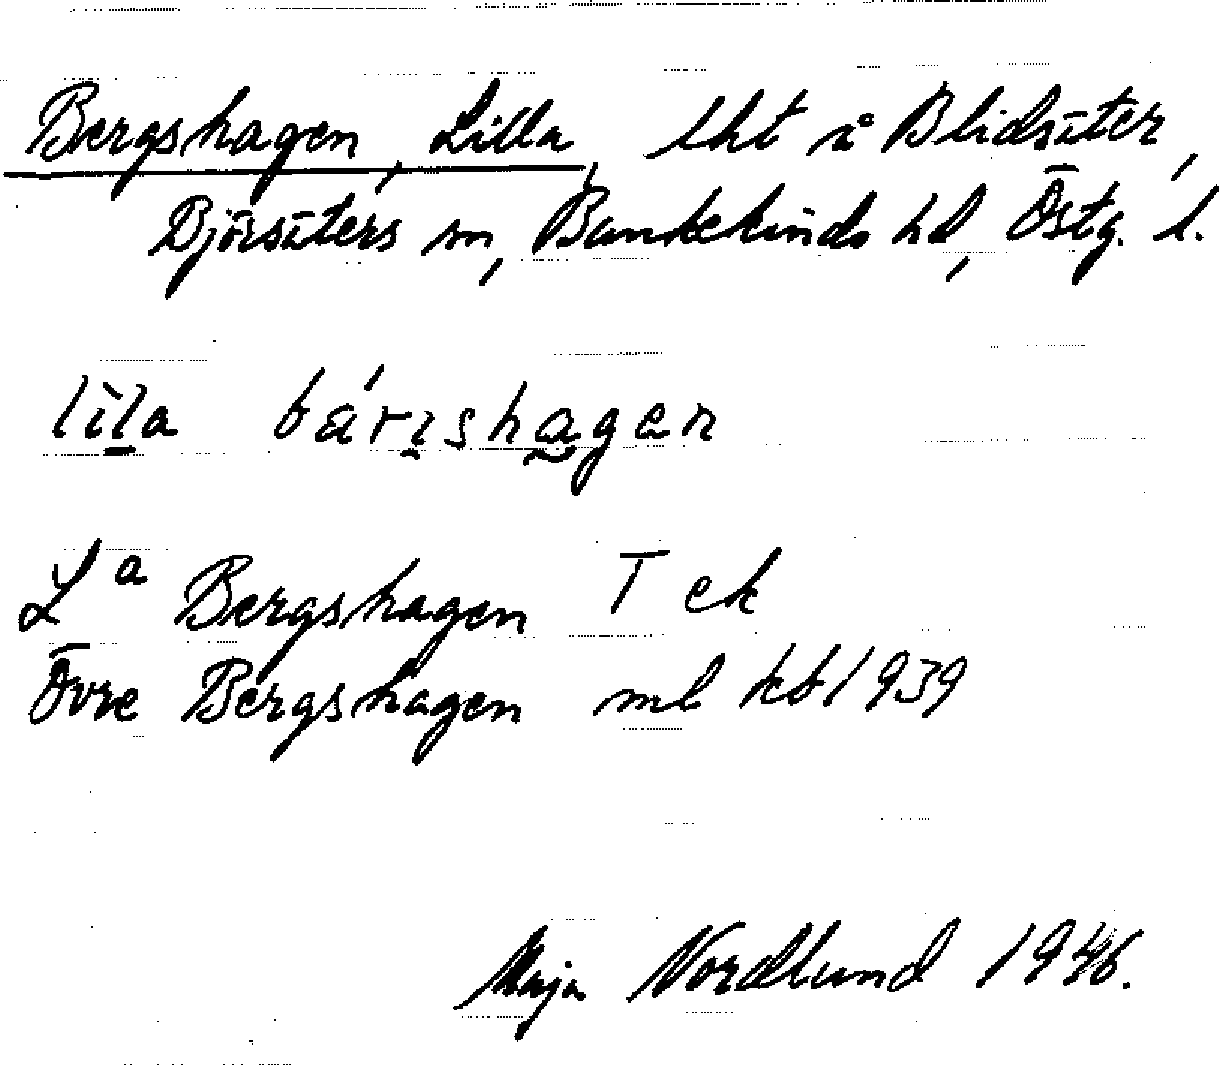 Bergshagen, Lilla, lht å Blidsäter,
Björsäters sn, Bankekinds hd, Östg. l.
lìla bárishagen
L<sup>a</sup> Bergshagen T ek
Övre Bergshagen ml kb 1939
Maja Nordlund 1946.